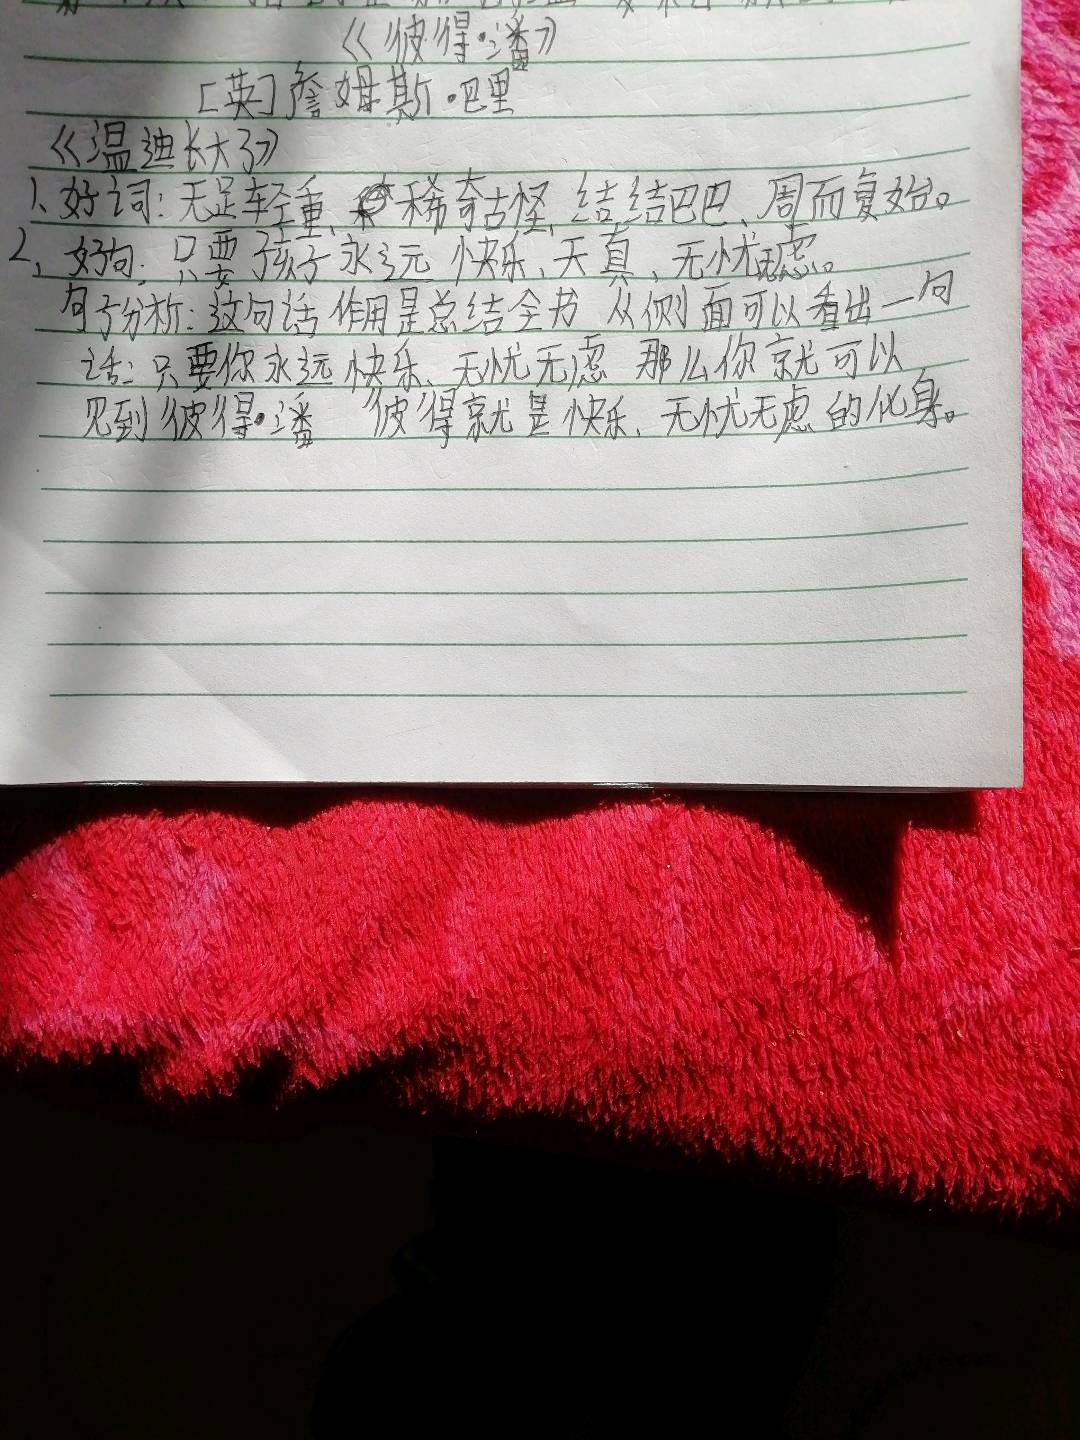 《彼得·潘》
[英]詹姆斯·巴里
《温迪长大了》
1、好词：无足轻重、稀奇古怪、结结巴巴、周而复始。
2、好句：只要孩子永远 快乐、天真、无忧无虑。
句子分析：这句话 作用是总结全书 从侧面可以看出一句
话：只要你永远 快乐、无忧无虑 那么你就可以
见到彼得·潘 彼得就是快乐、无忧无虑的化身。